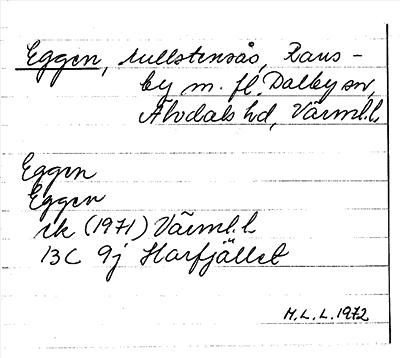 Eggen, rullstensås, Rans-
by m. fl. Dalby sn,
Älvdals hd, Värml.l.
Eggen
Eggen
ek (1971) Värml.l
13C 9j Harfjället
M.L.L. 1972